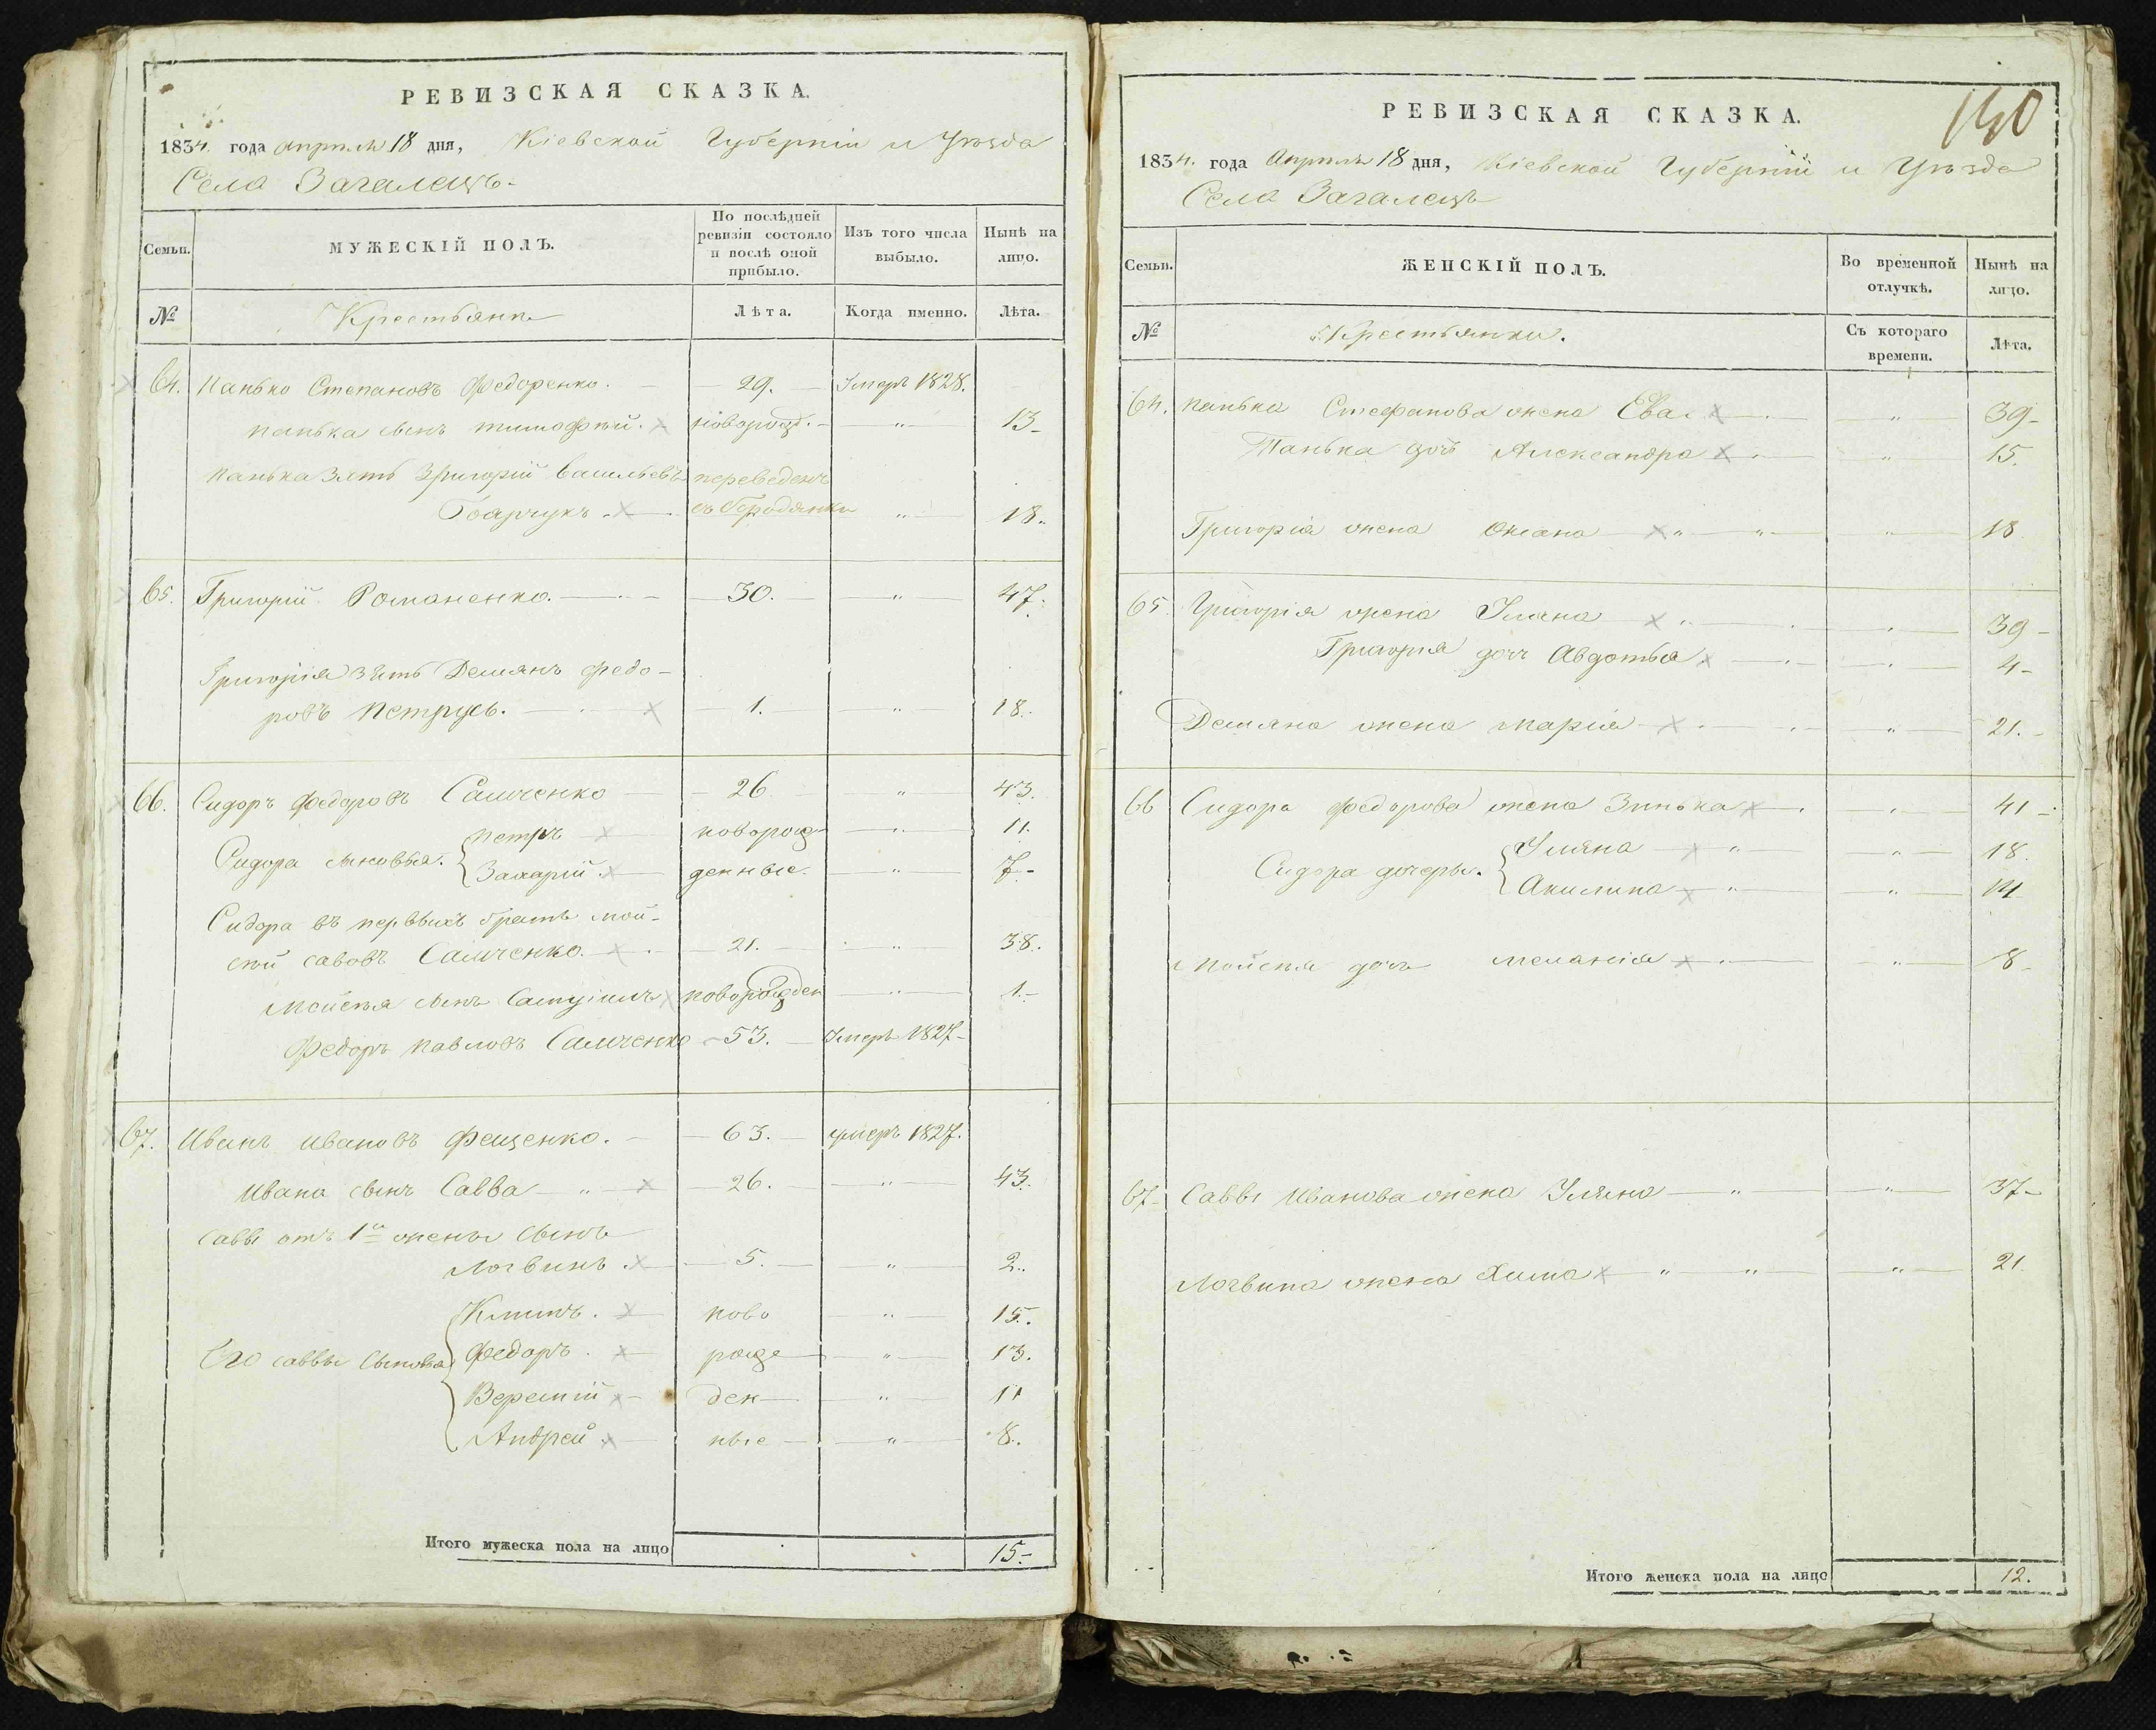 РЕВИЗСКАЯ СКАЗКА.
1834. года апреля 18 дня, Кіевской Губерніи и Уѣзда
Села Загалецъ.
Семьи. МУЖЕСКІЙ ПОЛЪ. По послѣдней ревизіи состояло и послѣ оной прибыло. Изъ того числа выбыло. Нынѣ на лицо.
№ Крестьяни Лѣта. Когда именно. Лѣта.
64. Панько Степановъ Федоренко. 29. Умеръ 1828.
Панька сынъ Тимофѣй. новорожд. " 13
Панька зять Григорій Васильевъ переведенъ
съ Бородянки " 18.
65. Григорій Романенко. 30. " 47.
Григорія зять Демянъ Федо-
ровъ Петрусь. 1. " 18.
66. Сидоръ Федоровъ Самченко 26 " 43.
Сидора сыновья. Петръ новорож " 11.
Захарій денные. " 7
Сидора въ первыхъ братъ Мой-
сей Савовъ Самченко. 21. " 38.
Мойсея сынъ Самуилъ новорожден " 1.
Федоръ Павловъ Самченко 53. Умеръ 1827
67. Иванъ Ивановъ Фещенко. 63. умеръ 1827.
Ивана сынъ Савва " 26. " 43.
Саввы отъ 1й жены сынъ
Логвинъ. 5. " 2.
Климъ. ново " 15.
Его Саввы сыновья Федоръ. рож " 13.
Веремій ден " 11
Андрей. ные " 8.
Итого мужеска пола на лицо 15.
РЕВИЗСКАЯ СКАЗКА.
140
1834. года Апреля 18 дня, Кіевской Губерніи и Уѣзда
Села Загалецъ
Семьи. ЖЕНСКІЙ ПОЛЪ. Во временной отлучкѣ. Нынѣ на лицо.
№ Крестьянки. Съ котораго времени. Лѣта.
64. Панька Стефанова жена Ева " 39
Панька дочь Александра " 15.
Григорія жена Оксана " " " 18
65. Григорія жена Уляна " 39
Григорія дочь Авдотья " 4
Демяна жена Марія " 21.
66 Сидора Федорова жена Зинька " 41
Сидора дочеры. Уляна " " 18.
Акилина " " 14
Мойсея дочь Меланія " 8
67 Саввы Иванова жена Уляна " " 37
Логвина жена Хима " " " 21
Итого женска пола на лицо 12.